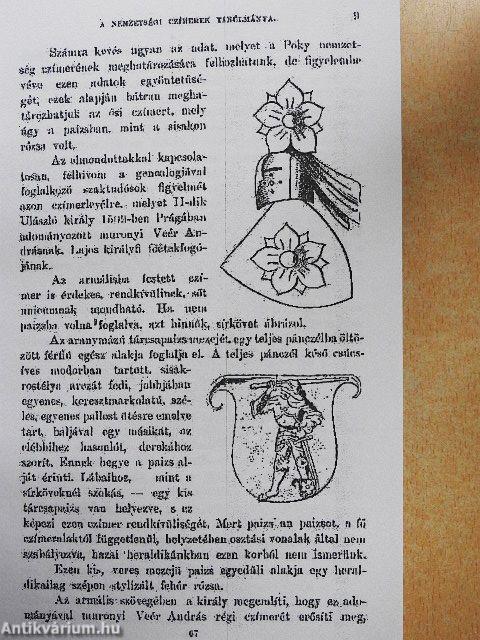 A NEMZETSÉGI CZÍMEREK TANULMÁNYA. 9
Számra kevés ugyan az adat, melyet a Poky nemzet-
ség czímerének meghatározására felhozhatunk, de figyelembe
véve ezen adatok egyöntetűsé-
gét, ezek alapján bátran megha-
tározhatjuk az ősi czímert, mely
úgy a paizsban, mint a sisakon
rózsa volt.
Az elmondottakkal kapcsola-
tosan, felhívom a genealogiával
foglalkozó szaktudósok figyelmét
azon czímerlevélre, melyet II-dik
Ulászló király 1502-ben Prágában
adományozott muronyi Veér And-
rásnak, Lajos királyfi főétekfogó-
jának.
Az armálisba festett czí-
mer is érdekes, rendkívülinek, sőt
unicumnak mondható. Ha nem
paizsba volna foglalva, azt hinnők, sírkövet ábrázol.
Az aranymázú tárcsapaizs mezejét egy teljes pánczélba öltö-
zött férfiú egész alakja foglalja el. A teljes pánczél késő csúcs-
íves modorban tartott, sisak-
rostélya arczát fedi, jobbjában
egyenes, keresztmarkolatú, szé-
les, egyenes pallost ütésre emelve
tart, baljával egy másikat, az
elébbihez hasonlót, derekához
szorít. Ennek hegye a paizs al-
ját érinti. Lábaihoz, mint a
sírköveknél szokás, — egy kis
tárcsapaizs van helyezve, s ez
képezi ezen czímer rendkívüliségét. Mert paizs an paizsot, a fő
czímeralaktól függetlenül, helyzetében osztási vonalak által nem
szabályozva, hazai heraldikánkban ezen korból nem ismerünk.
Ezen kis, veres mezejű paizs egyedüli alakja egy heral-
dikailag szépen stylizált fehér rózsa.
Az armális szövegében a király megemlíti, hogy ez ado-
mányával muronyi Veér András régi czímerét erősíti meg,
67
Antikvárium.hu